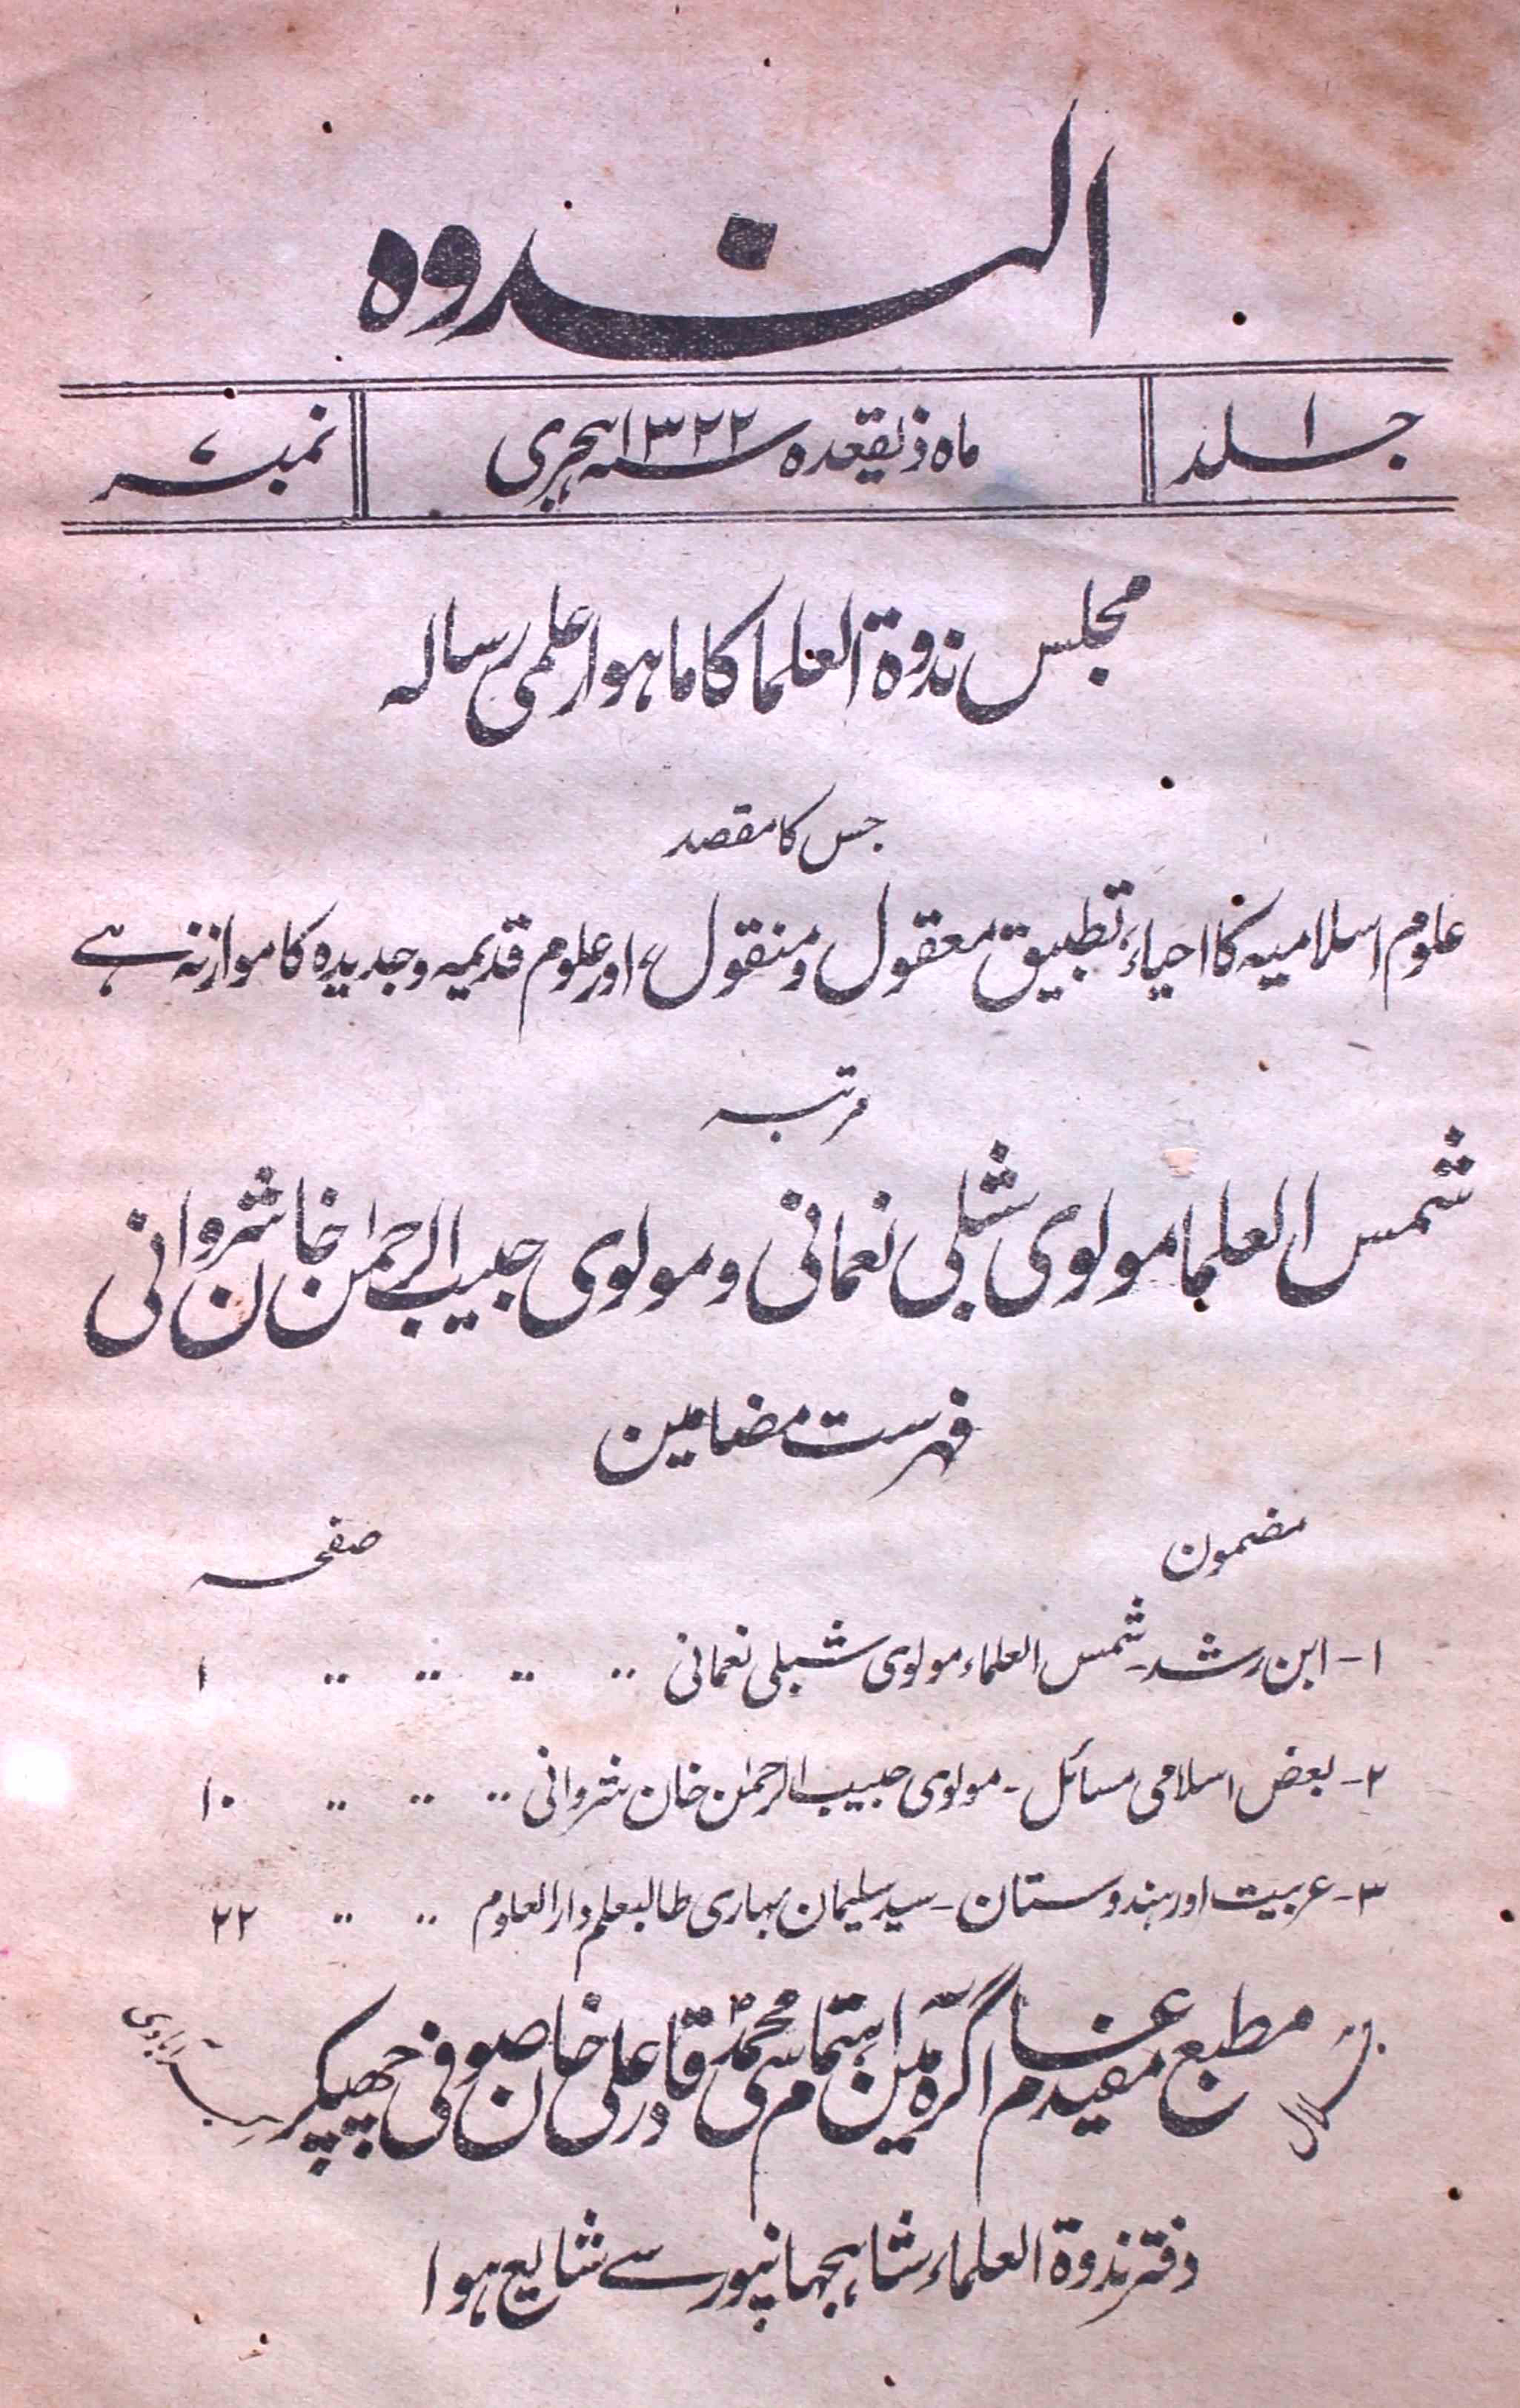 الندوه
جلد ۱
ماہ ذیقعدہ سنہ ۱۳۲۲ ہجری
نمبر
مجلس ندوۃ العلما کا ماہوار علمی رسالہ
جس کا مقصد
علوم اسلامیہ کا احیاء، تطبیق معقول و منقول، اور علوم قدیمہ و جدیدہ کا موازنہ ہے
مرتبہ
شمس العلما مولوی شبلی نعمانی و مولوی حبیب الرحمٰن خان شروانی
فہرست مضامین
مضمون صفحہ
۱- ابن رشد- شمس العلماء مولوی شبلی نعمانی .. .. .. .. ۱
۲- بعض اسلامی مسائل - مولوی حبیب الرحمٰن خان شروانی .. .. .. ۱۰
۳- عربیت اور ہندوستان - سید سلیمان بہاری طالبعلم دارالعلوم .. .. ۲۲
مطبع مفید عام آگرہ مین اہتمام سی محمد قادر علی خان صوفی چھپکر
دفتر ندوۃ العلماء شاہجہانپور سے شایع ہوا